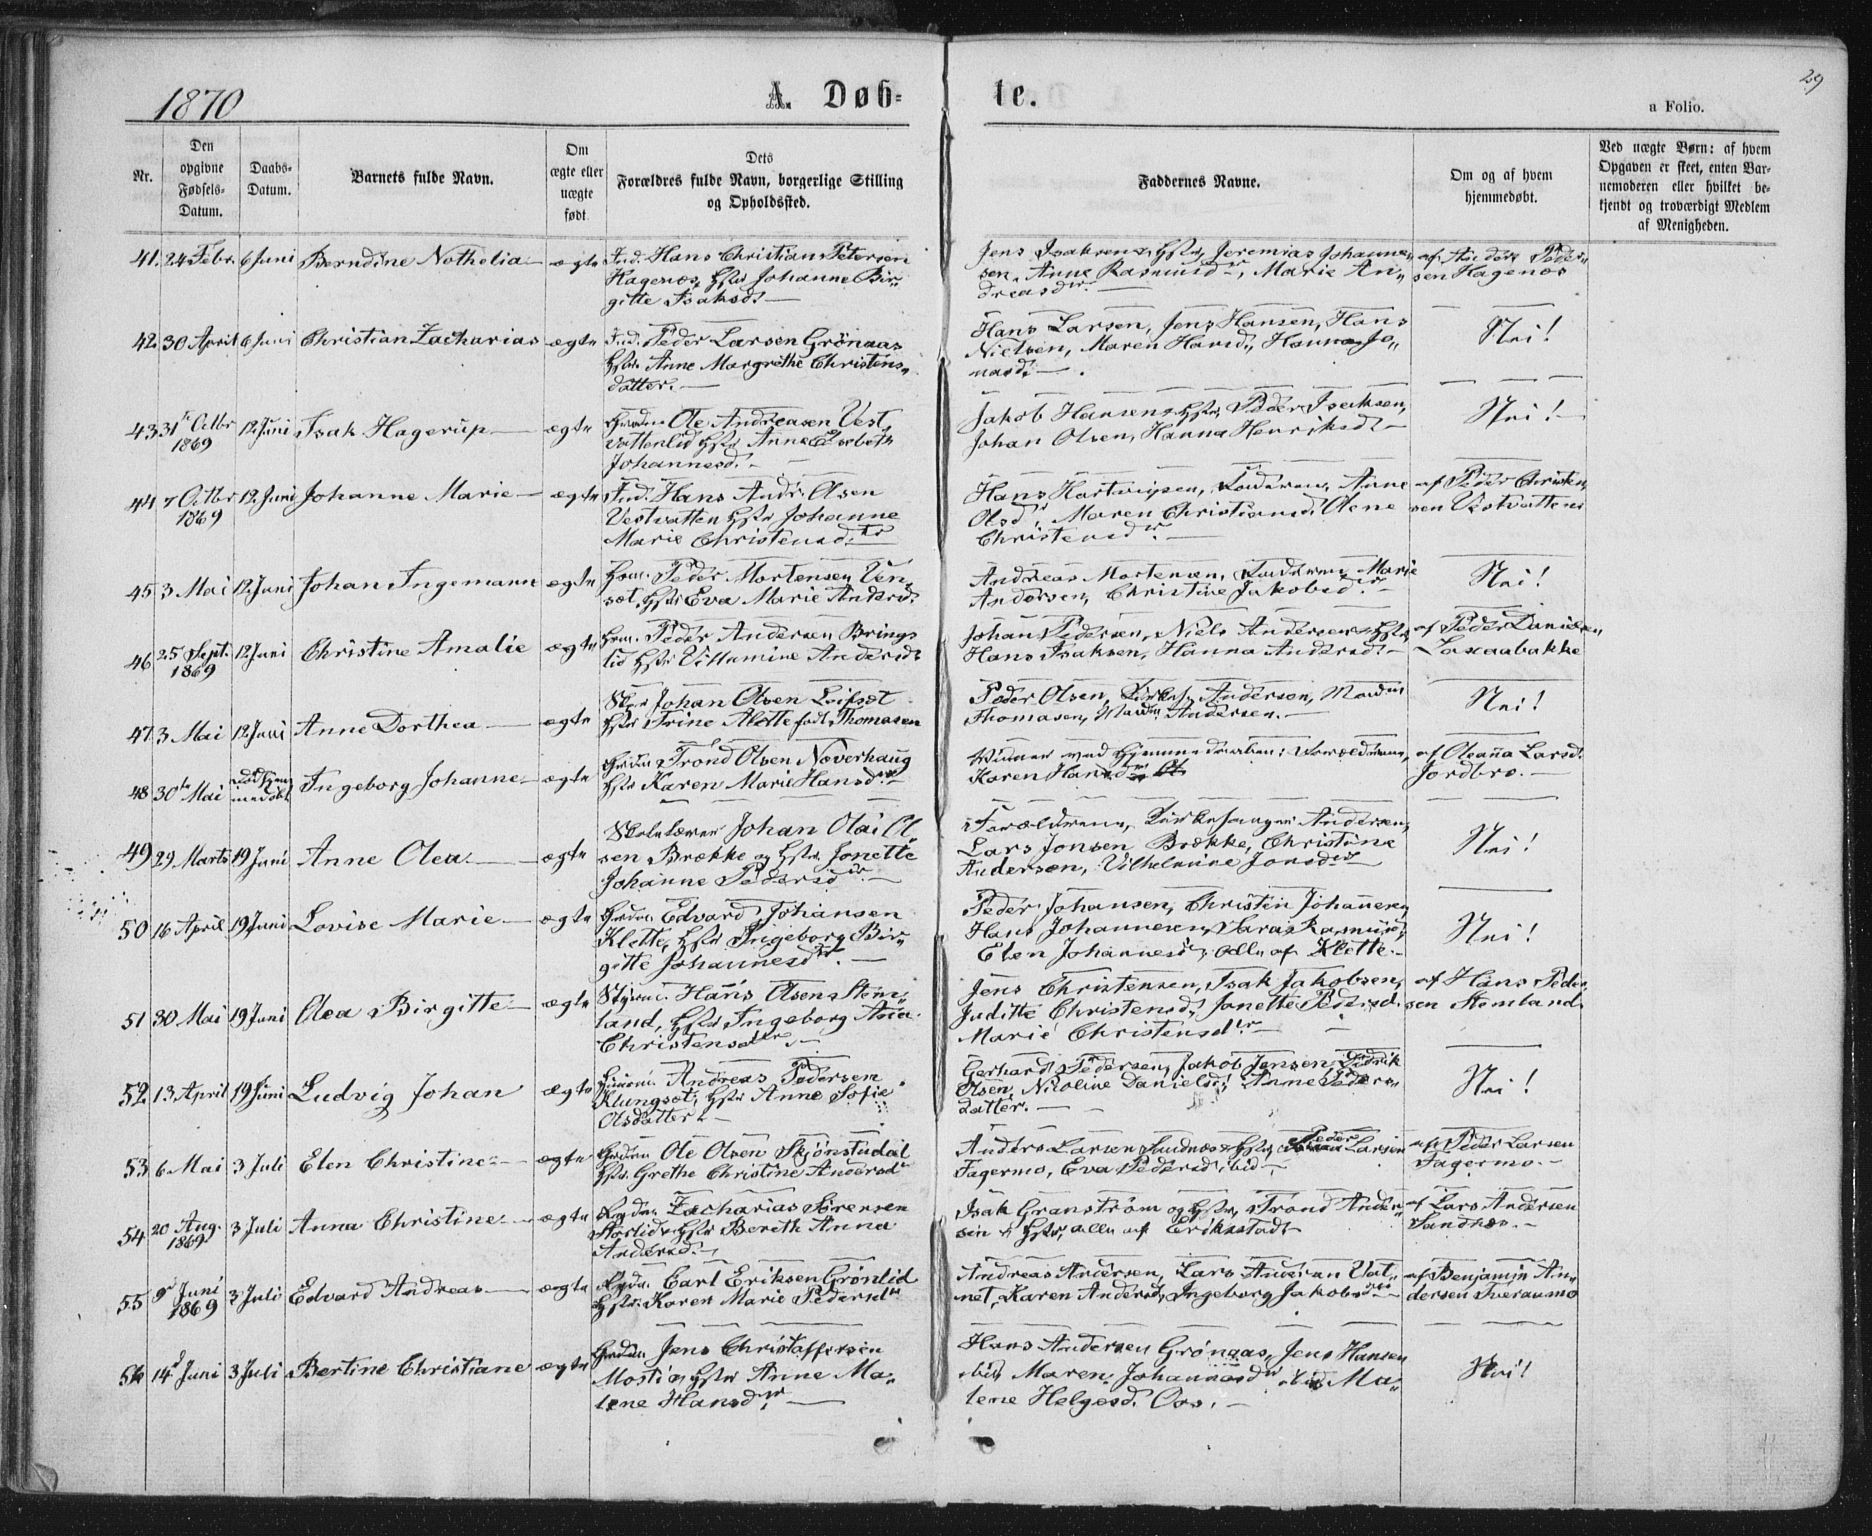 1870
A. Døb-
te.
29
a Folio.
Nr.
Den opgivne Fødsels-Datum.
Daabs-Datum.
Barnets fulde Navn.
Om ægte eller uægte født.
Dets Forældres fulde Navn, borgerlige Stilling og Opholdssted.
Faddernes Navne.
Om og af hvem hjemmedøbt.
Ved uægte Børn: af hvem Opgaven er skeet, enten Barnemoderen eller hvilket bekjendt og troværdigt Medlem af Menigheden.
41. 24 Febr. 6 Juni Berndine Nathalia ægte Ind. Hans Christian Petersen
Hagenæs, Hstr Johanne Bir-
gitte Isaksd.
Jens Isaksen & Hstr, Jeremias Johanne-
sen, Anne Rasmusdr, Marie An-
dreasdr.
af Anders Peder-
sen Hagenæs
42. 30 April 6 Juni Christian Zacharias ægte Ind. Peder Larsen Grønaas
Hstr. Anne Margrethe Christens-
datter.
Hans Larsen, Jens Hansen, Hans
Nielsen, Maren Hansd., Hanna Jo-
nasd.
Nei!
43 31te Octbr 1869 12 Juni Isak Hagerup ægte Grdm. Ole Andreasen Vest-
vattenlid Hstr Anne Elsebeth
Johannesd.
Jakob Hansen & Hstr, Peder Isaksen,
Johan Olsen, Hanna Henriksd.
Nei!
44 7 Octbr 1869 12. Juni Johanne Marie ægte Ind. Hans Andr. Olsen
Vestvatten Hstr Johanne
Marie Christensd.
Hans Hartvigsen, Anne
Olsd, Maren Christiansd, Olene
Christensdr.
af Peder Christen-
sen Vestvatten
45 3 Mai 12. Juni Johan Ingemann ægte Hm. Peder Mortensen Ven-
set, Hstr Eva Marie Andersd.
Andreas Mortensen, Marie
Andersen, Christine Jakobsd.
Nei!
46 25 Sept. 1869 12 Juni Christine Amalie ægte Hm. Peder Andersen Brings-
lid Hstr Villumine Andersd.
Johan Pedersen, Niels Andersen & Hstr,
Hans Isaksen, Hanna Andersd.
af Peder Danielsen
Laxaabakke
47 3 Mai 12 Juni Anne Dorthea ægte Johan Olsen Leifset
Hstr Trine Alette født Thomasen
Peder Olsen, Kirkes. Andersen,
Thomasen, Andersen.
Nei!
48 30te Mai Ingeborg Johanne ægte Grdm. Trond Olsen Naverhaug
Hstr Karen Marie Hansdtr
Vidner ved Hjemmedaaben: Forældrene,
Karen Hansdtr
af Oleana Larsd.
Jordbro.
49 29 Marts 19 Juni Anne Olea ægte Skolelærer Johan Olai Ol-
sen Brække og Hstr. Jonette
Johanne Pedersdtr
Forældrene, Kirkesanger Andersen,
Lars Jonsen Brække, Christine
Andersen, Vilhelmine Jonsdtr
Nei!
50 16 April 19 Juni Lovise Marie ægte Grdm. Edvard Johansen
Klette, Hstr Ingeborg Bir-
gitte Johannesdtr.
Peder Johansen, Christen Johannesen,
Hans Johannesen, Sara Rasmusd,
Elen Johannesdr, alle af Klette.
Nei!
51 30 Mai 19 Juni Olea Birgitte ægte Styrm. Hans Olsen Stem-
land, Hstr Ingeborg Ana
Christensdtr.
Jens Christensen, Isak Jakobsen,
Juditte Christensd, Janette Pedersd.
Marie Christensdtr
af Hans Peder-
sen Stemland.
52. 13 April 19 Juni Ludvig Johan ægte Andreas Pedersen
Klungset, Hstr Anne Sofie
Olsdatter.
Gerhard Pedersen, Jakob Jensen,
Olsen, Nicoline Danielsd, Anne Peders-
datter.
Nei!
53 6 Mai 3 Juli Elen Christine ægte Grdm Ole Olsen Skjønstudal
Hstr. Grethe Christine Andersdr
Anders Larsen Sandnæs & Hstr, Peder Larsen
Fagermo, Eva Pedersd. ibid
af Peder Larsen
Fagermo.
54 20 Aug. 1869 3 Juli Anna Christine ægte Rydm. Zacharias Sørensen
Storlid & Hstr Bereth Anna
Andersd.
Isak Granstrøm og Hstr, Trond Ander-
sen & Hstr, alle af Erikstad
af Lars Andersen
Sandnæs.
55 9 Juni 1869 3 Juli Edvard Andreas ægte Rydm. Carl Eriksen Grønlid
Hstr. Karen Marie Pedersdr
Andreas Andersen, Lars Andersen Vat-
net, Karen Andersd, Ingeborg Jakobsdtr
af Benjamin An-
dersen Tveraamo
56 14de Juni 3 Juli Bertine Christiane ægte Grdm Jens Christoffersen
Mosti og Hstr Anne Ma-
lene Hansdtr.
Hans Andersen Grønaas, Jens Hansen
ibid, Maren Johannesdtr ibid, Ma-
lene Helgesd. Oxs.
Nei!